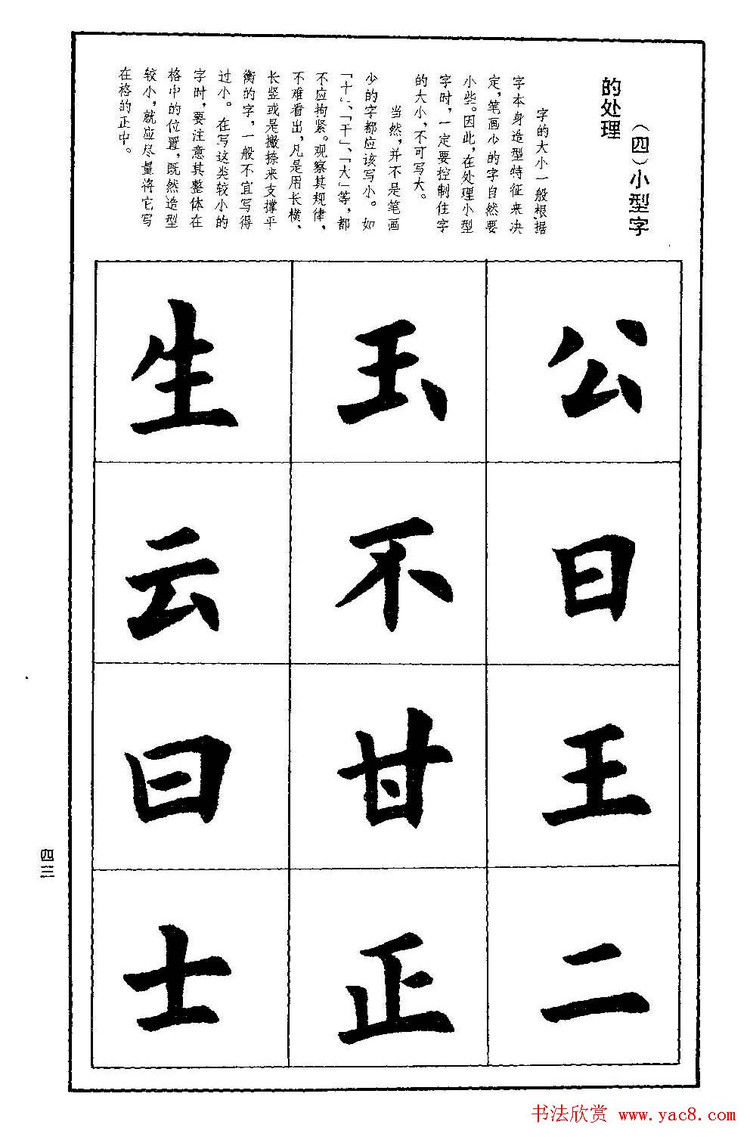 （四）小型字
的处理
字的大小一般根据
字本身造型特征来决
定，笔画少的字自然要
小些。因此，在处理小型
字时，一定要控制住字
的大小，不可写大。
当然，并不是笔画
少的字都应该写小。如
「十」、「干」、「大」等，都
不应拘紧。观察其规律，
不难看出，凡是用长横、
长竖或是撇捺来支撑平
衡的字，一般不宜写得
过小。在写这类较小的
字时，要注意其整体在
格中的位置，既然造型
较小，就应尽量将它写
在格的正中。
公日王二
玉不甘正
生云曰士
四三
书法欣赏 www.yac8.com